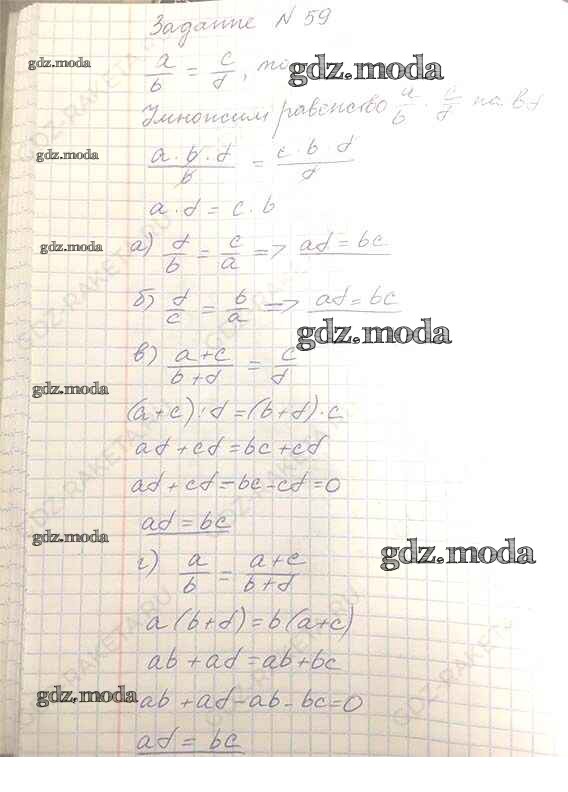 Задание № 59
gdz.moda
a/b = c/d, то
gdz.moda
Умножим равенство a/b · c/d на bd
gdz.moda
a·b·d/b = c·b·d/d
a·d = c·b
gdz.moda
а) d/b = c/a => ad = bc
б) d/c = b/a => ad = bc
gdz.moda
в) a+c/b+d = c/d
gdz.moda
(a+c)·d = (b+d)·c
ad + cd = bc + cd
ad + cd = bc - cd = 0
ad = bc
gdz.moda
г) a/b = a+c/b+d
gdz.moda
a(b+d) = b(a+c)
ab + ad = ab + bc
gdz.moda
ab + ad - ab - bc = 0
ad = bc